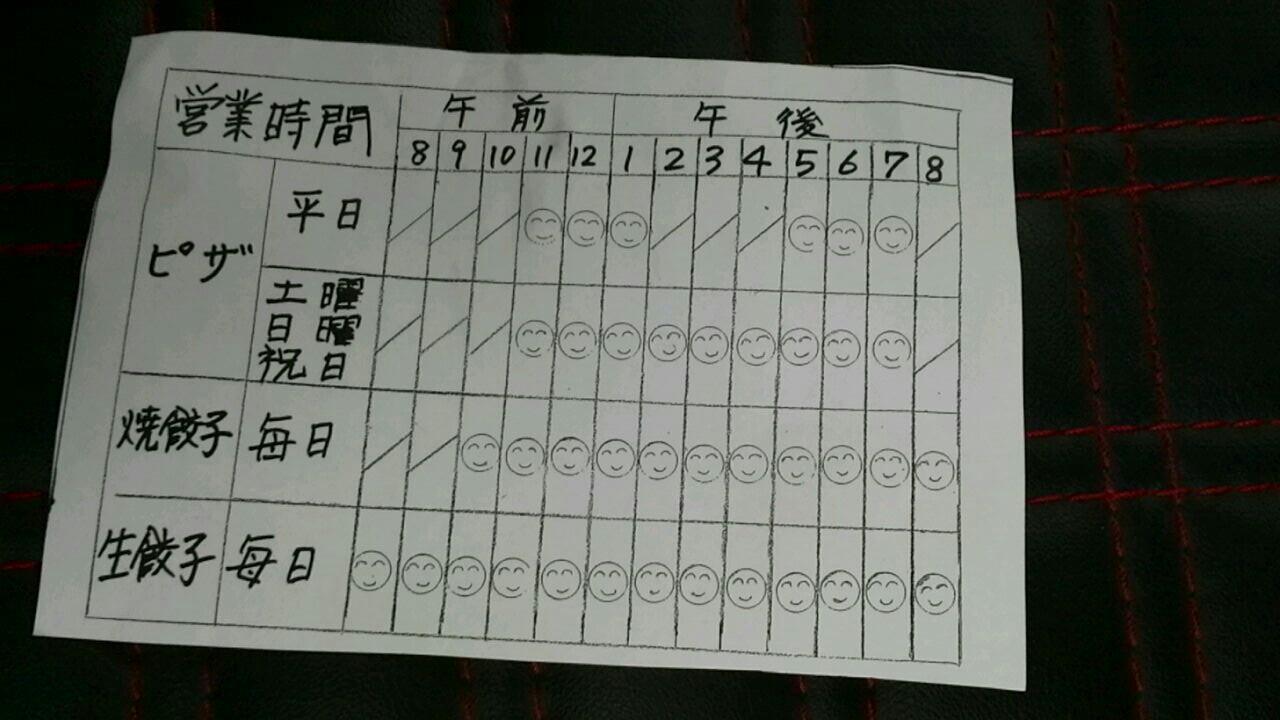 営業時間 午前 午後
8 9 10 11 12 1 2 3 4 5 6 7 8
ピザ 平日
土曜
日曜
祝日
焼餃子 毎日
生餃子 毎日